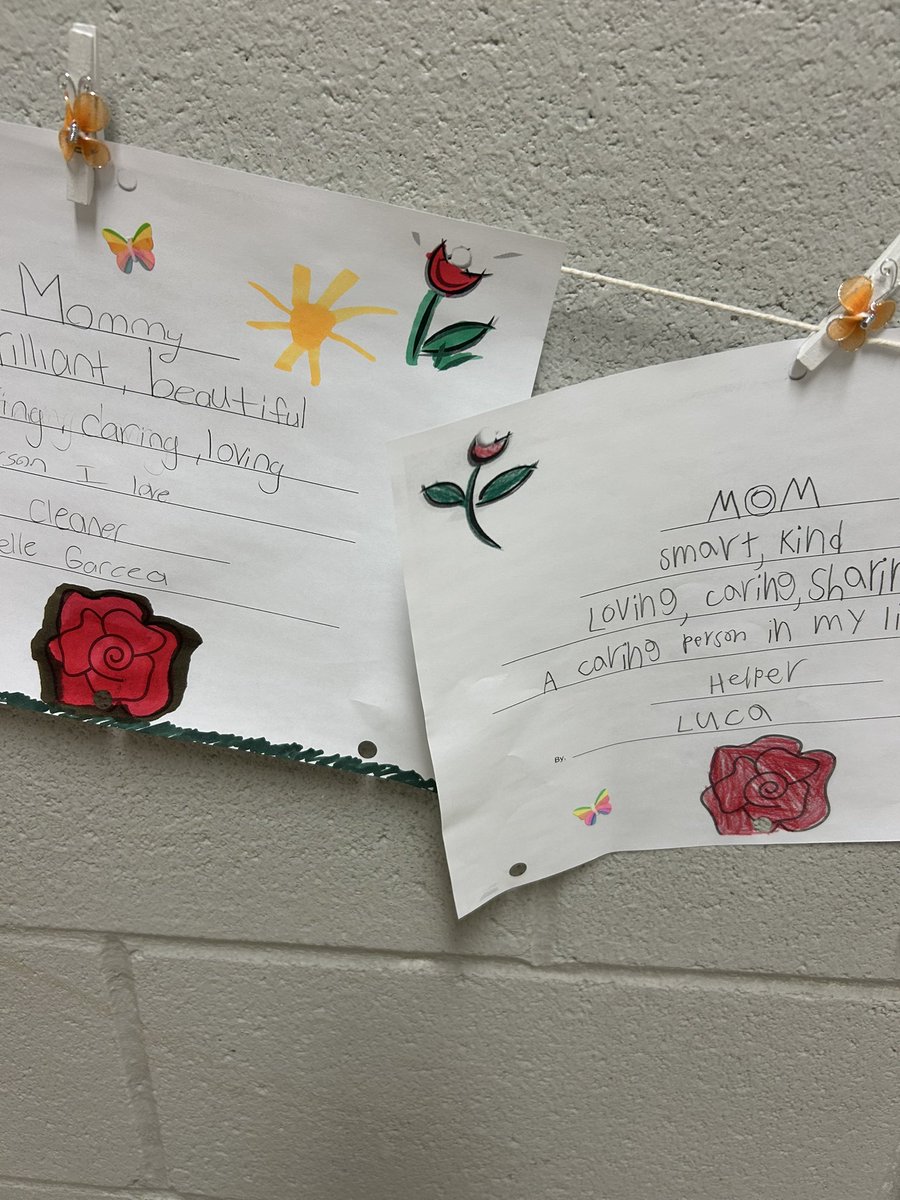 Mommy
rilliant, beautiful
ing, daring, loving
rson I love
Cleaner
elle Garcea
MOM
smart, kind
Loving, caring, sharin
A caring person in my li
Helper
By. Luca